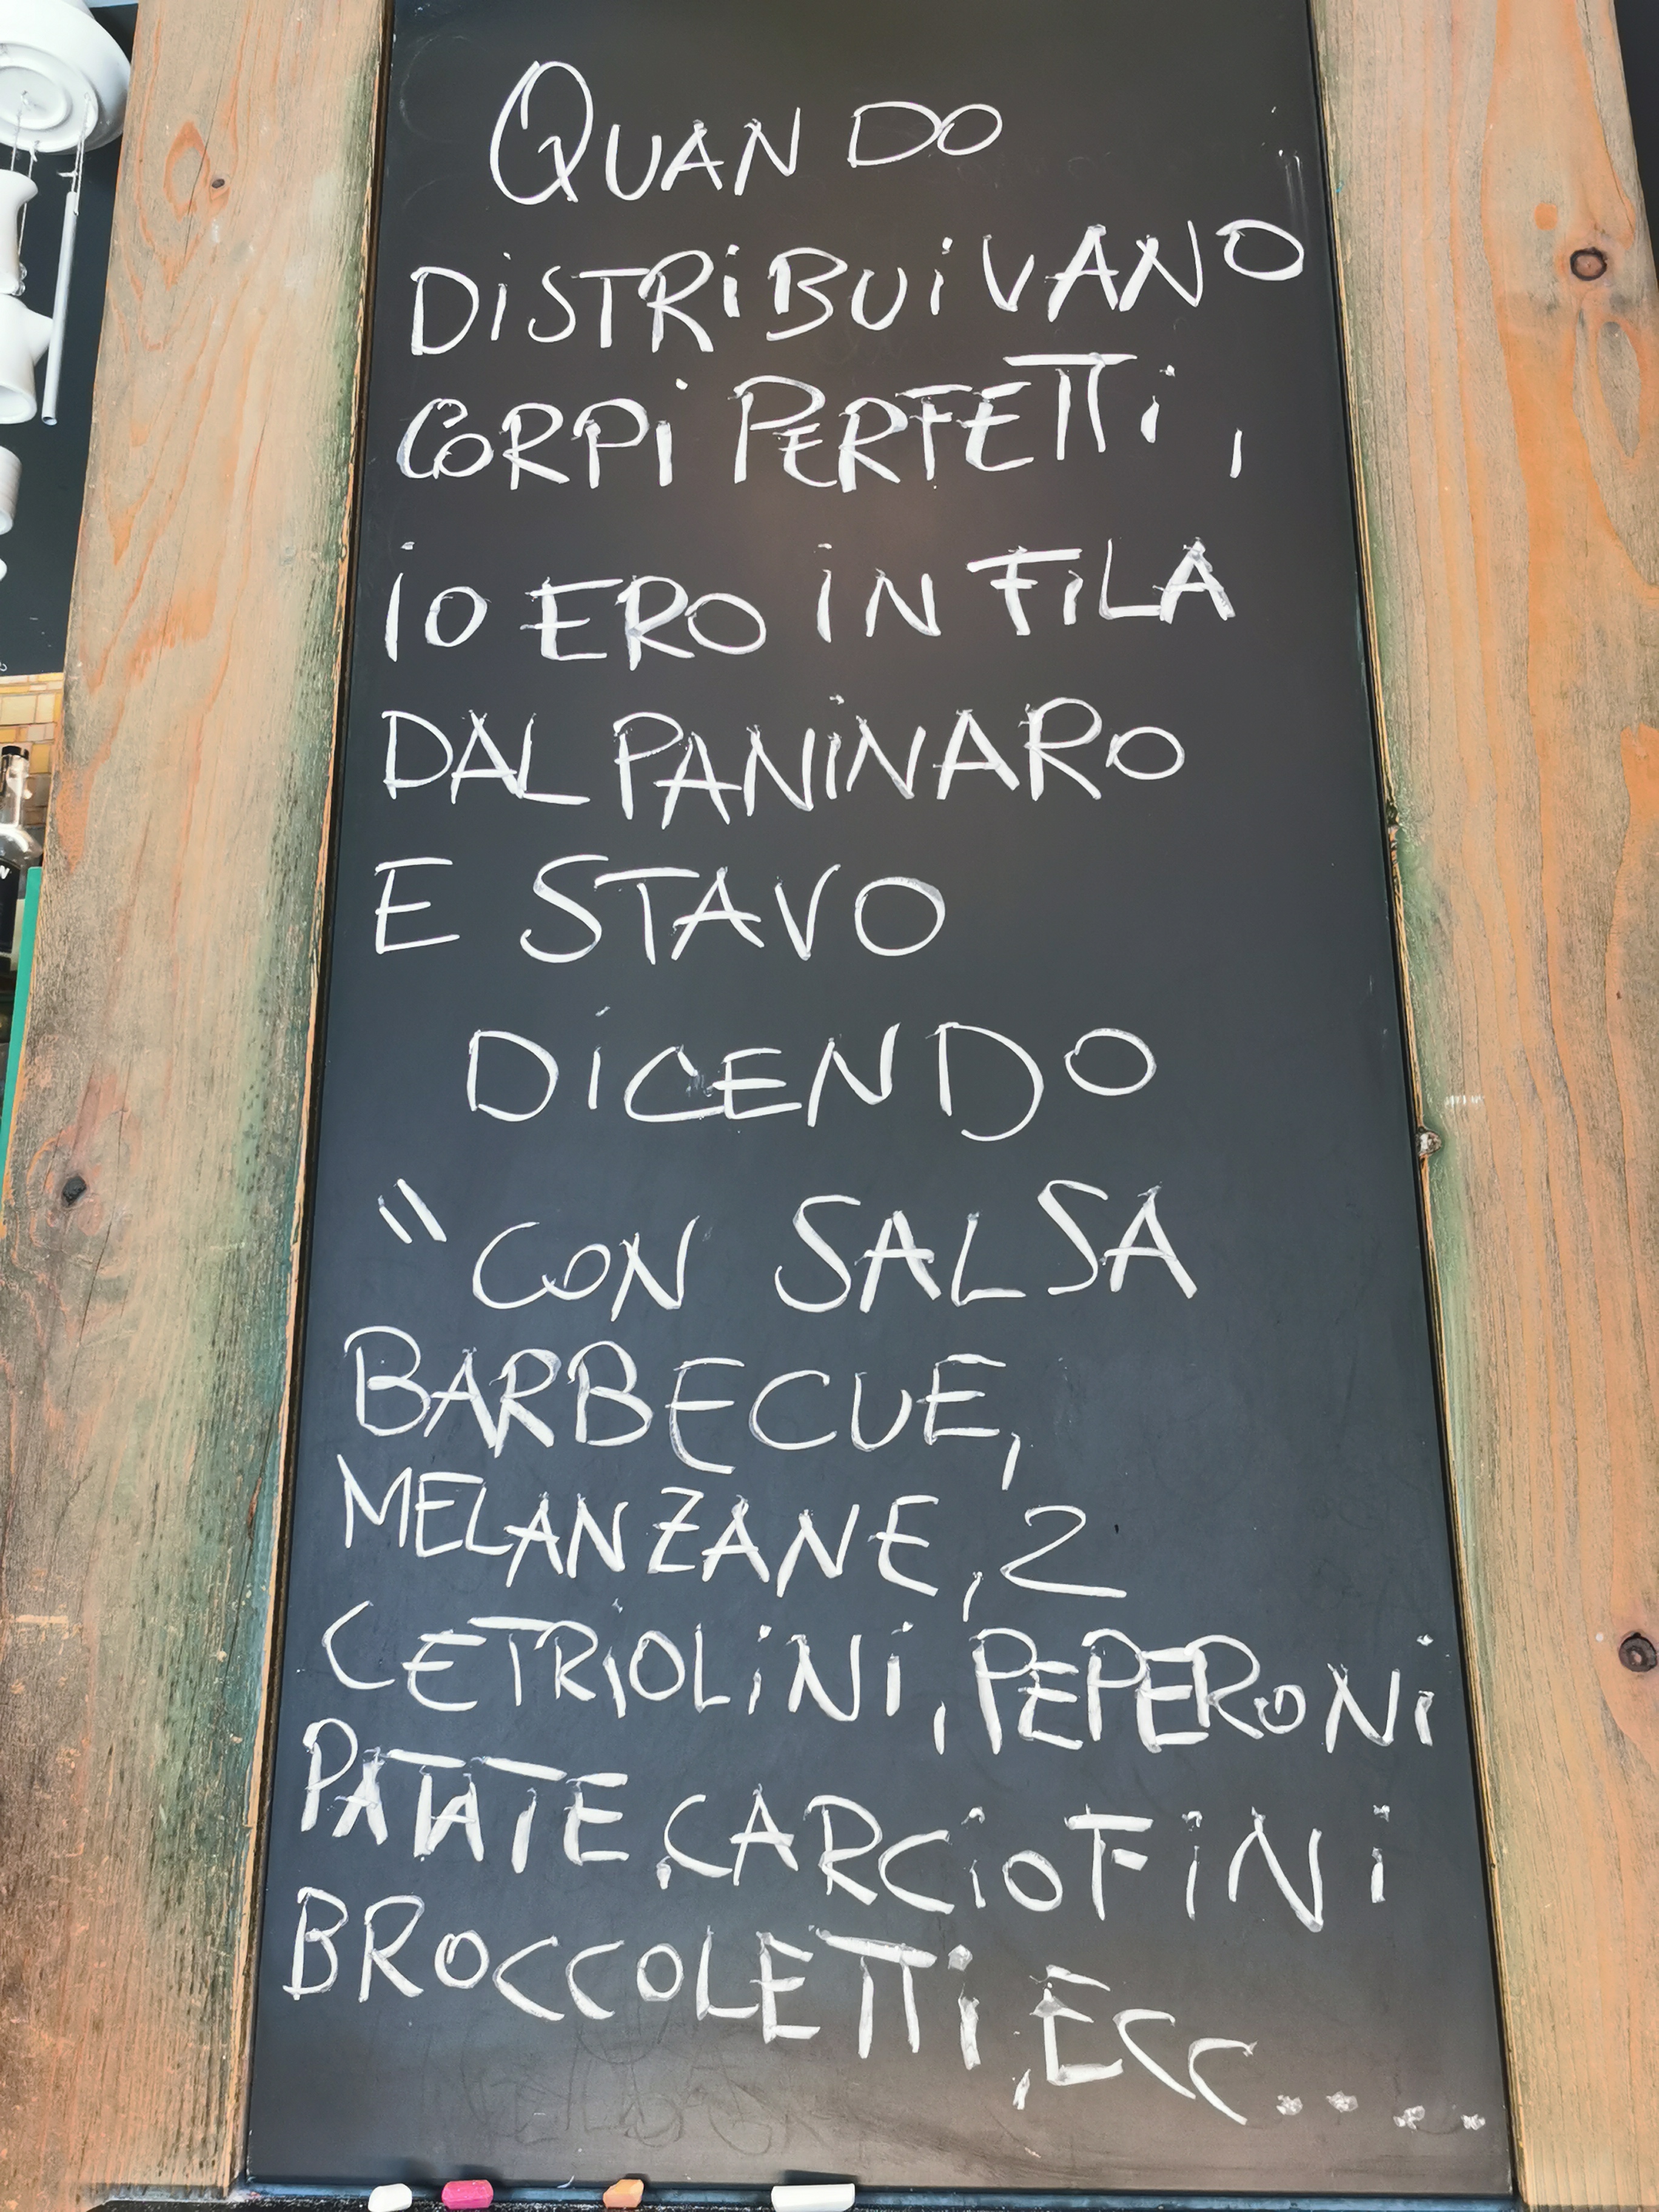 QUANDO
DiSTRiBUiVANO
CORPi PERFETTi,
iO ERO iN FiLA
DAL PANiNARO
E STAVO
DiCENDO
"CON SALSA
BARBECUE,
MELANZANE, 2
CETRIOLiNi, PEPERONi
PATATE, CARCiOFiNi
BROCCOLETTi, ECC....